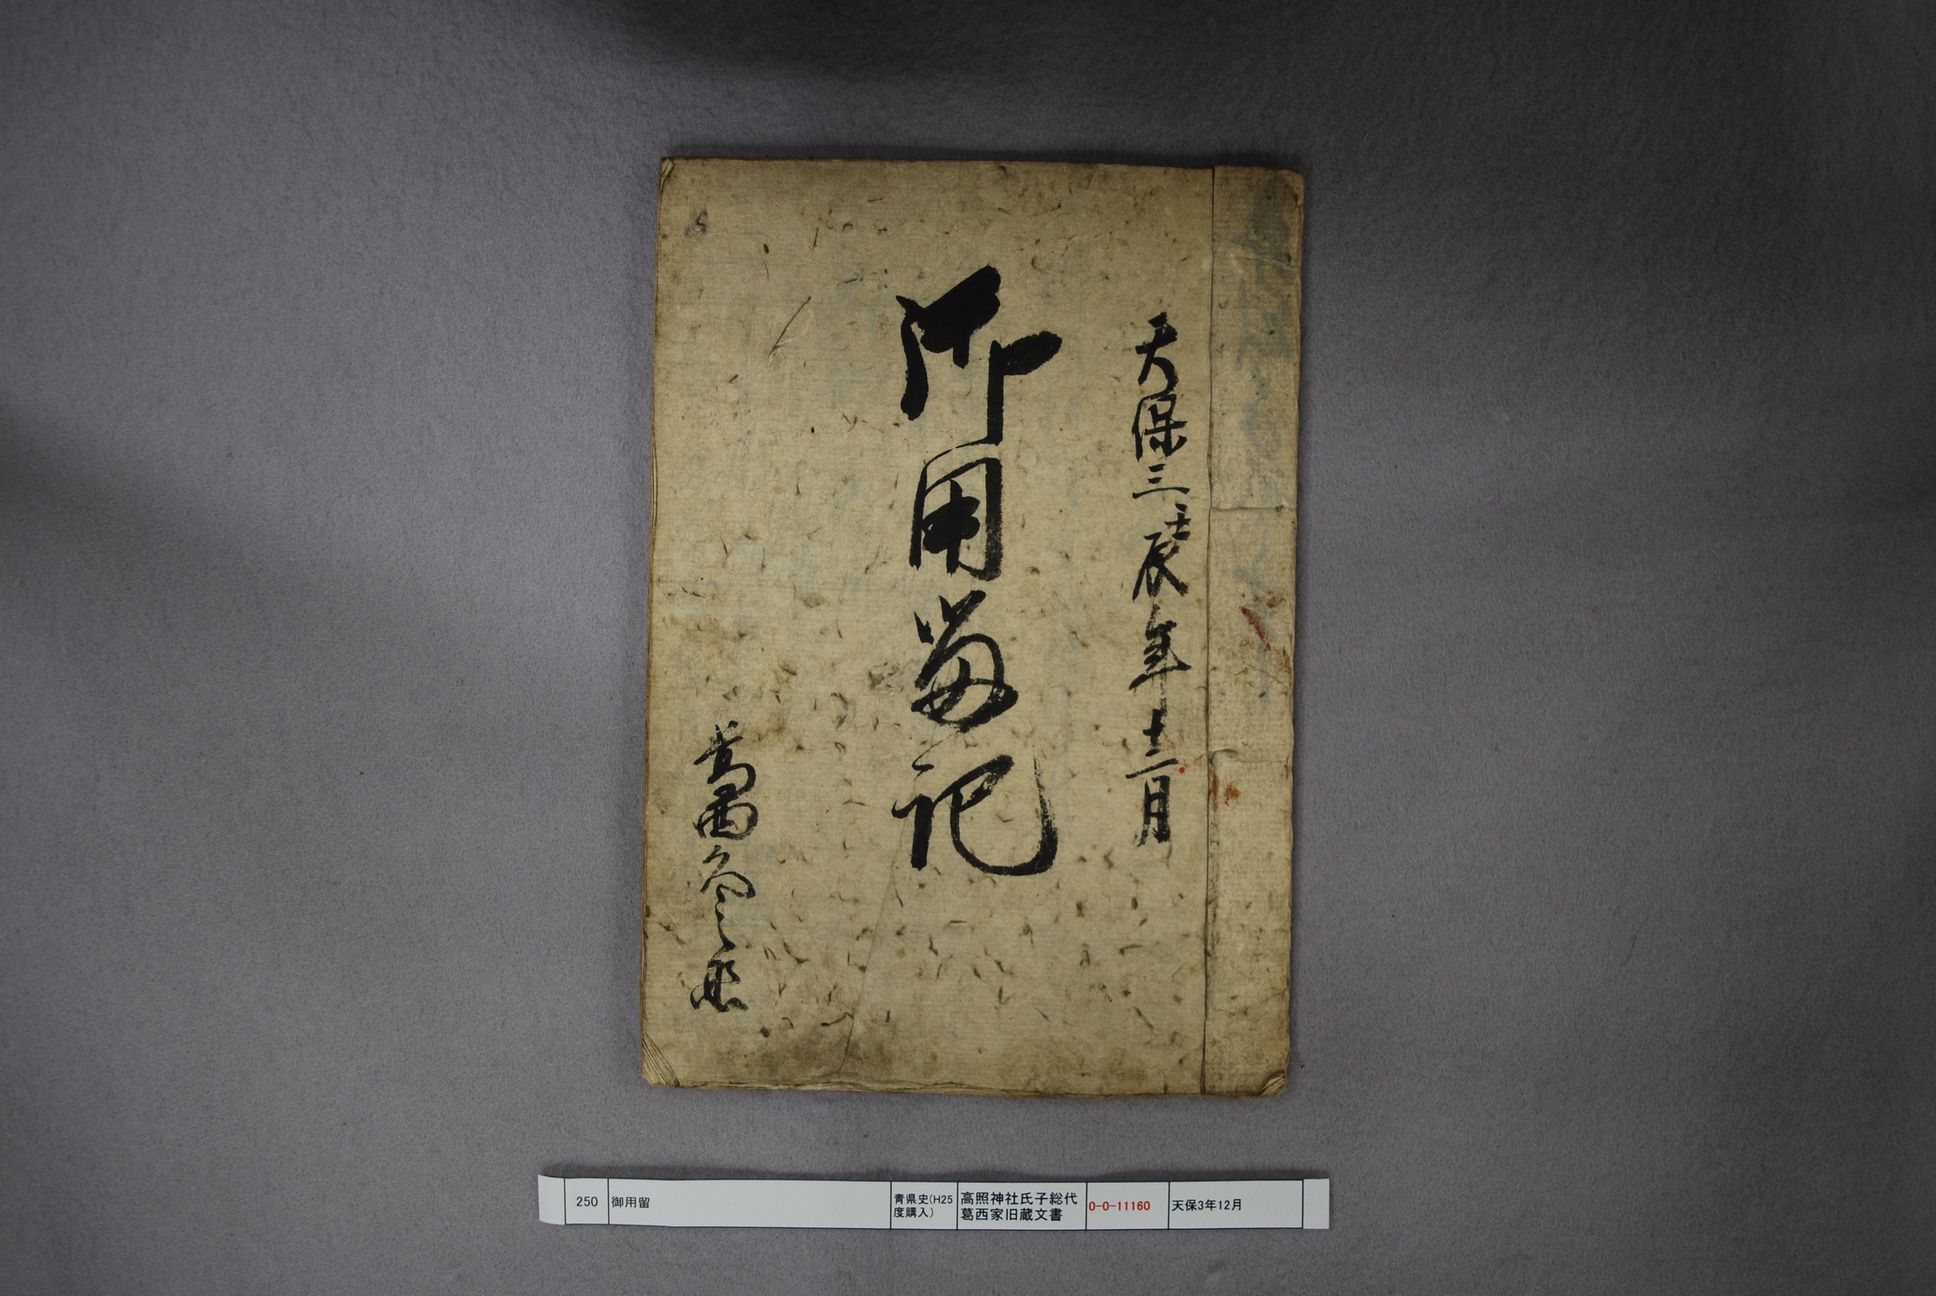 天保三壬辰年十二月
御用留記
葛西
250
御用留
青県史(H25
度購入)
高照神社氏子総代
葛西家旧蔵文書
0-0-11160
天保3年12月